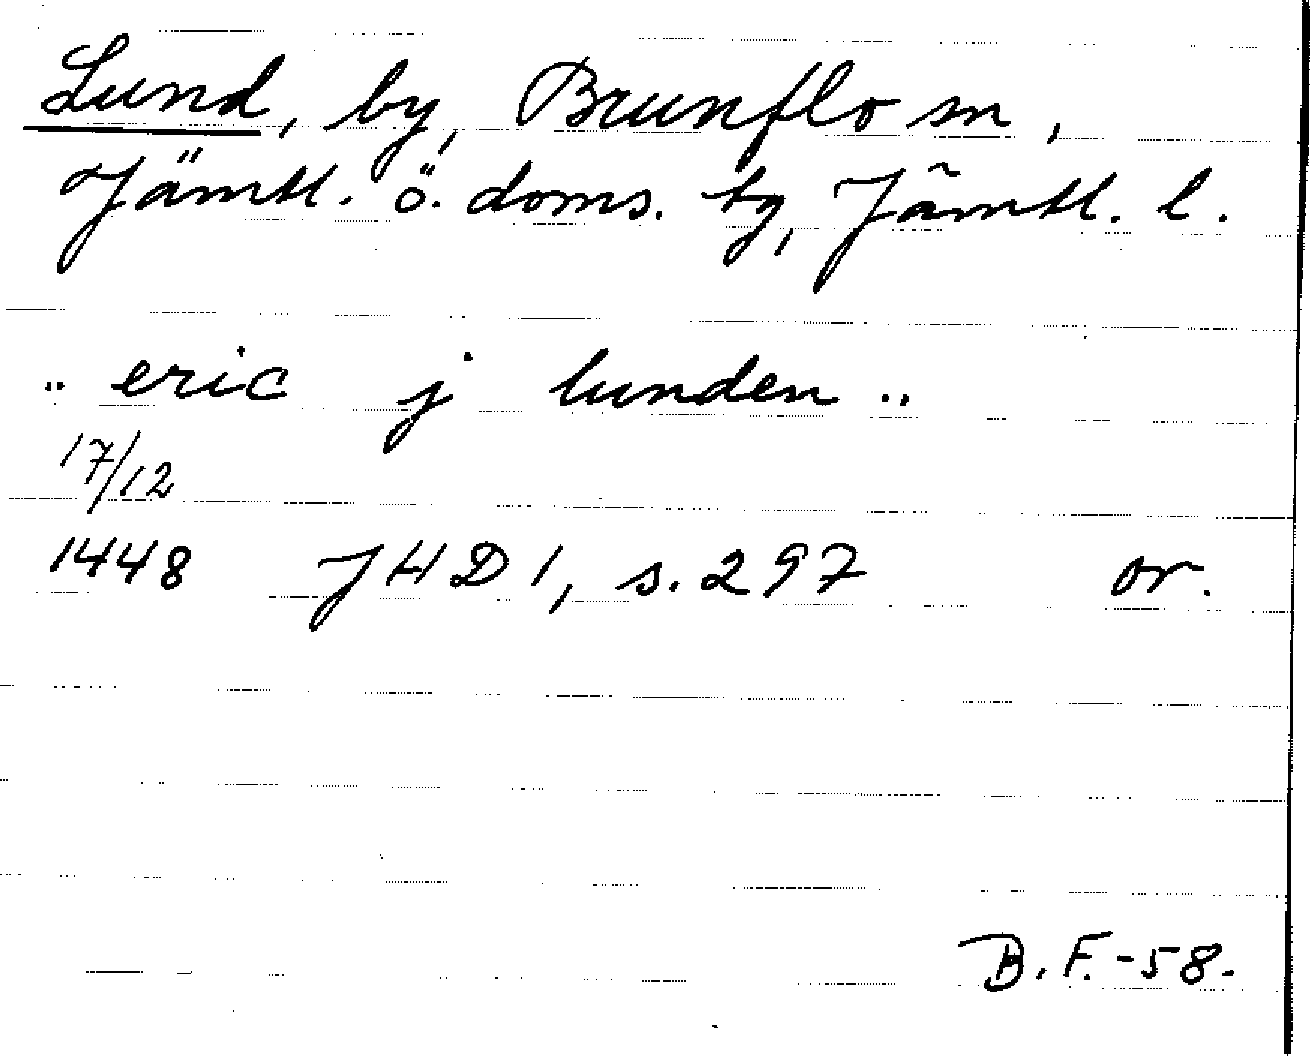 Lund, by, Brunflo sn,
Jämtl. ö. doms. tg, Jämtl. l.
.. eric j lunden ..
17/12
1448 JHD 1, s. 297 or.
B.F.-58.